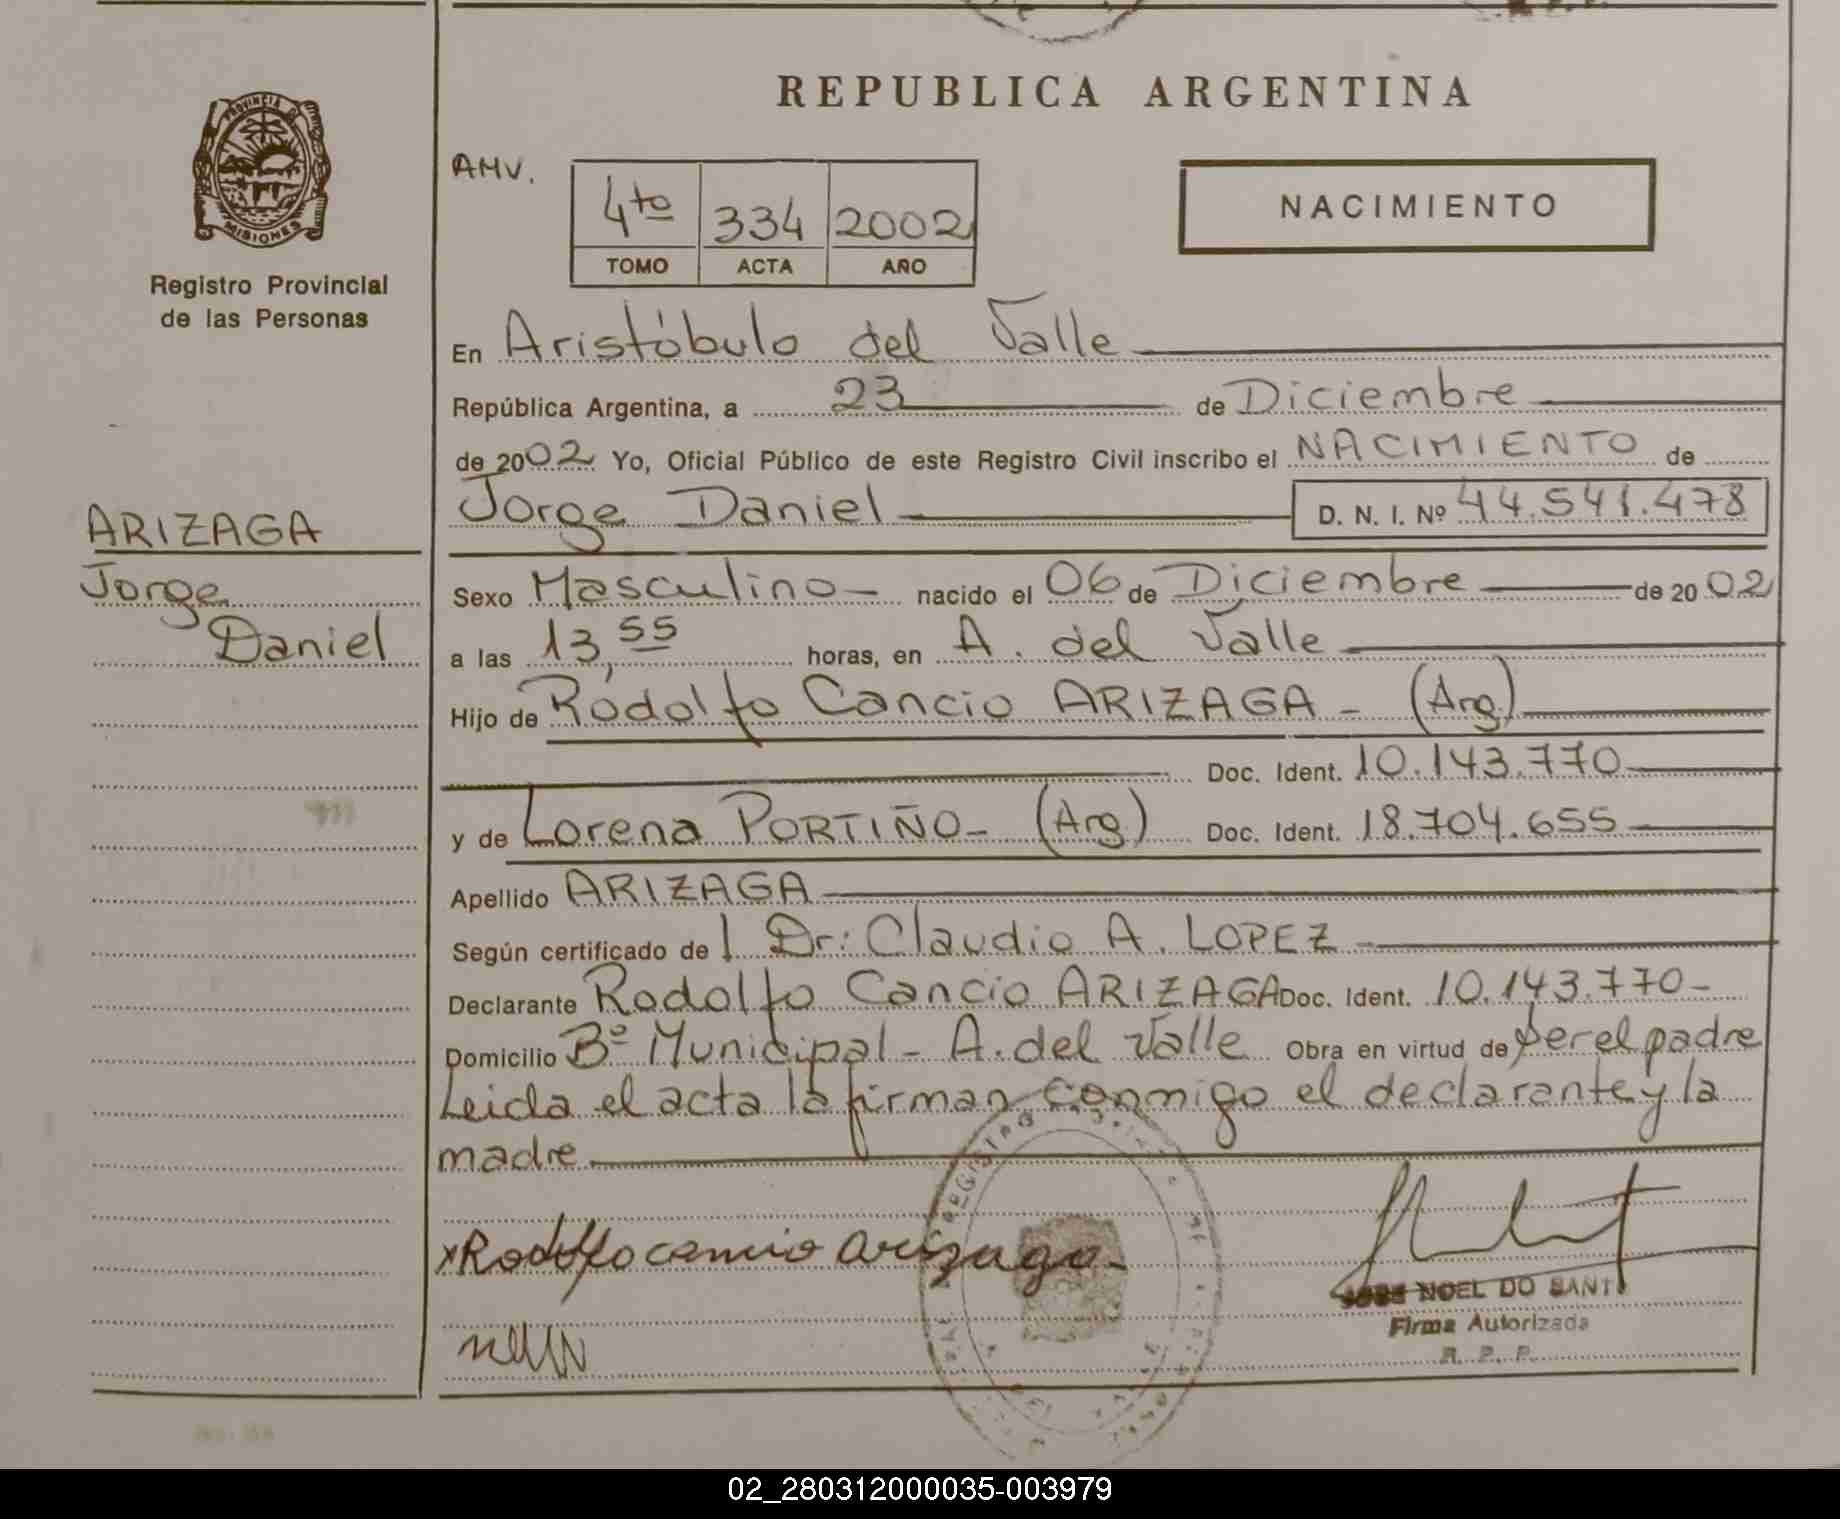 REPUBLICA ARGENTINA
PROVINCIA D
MISIONES
Registro Provincial
de las Personas
AMV.
4to 334 2002
TOMO ACTA AÑO
NACIMIENTO
En Aristóbulo del Valle
República Argentina, a 23 de Diciembre
de 2002 Yo, Oficial Público de este Registro Civil inscribo el NACIMIENTO de
Jorge Daniel D. N. I. Nº 44.541.478
ARIZAGA
Jorge
Daniel
Sexo Masculino nacido el 06 de Diciembre de 2002
a las 13,55 horas, en A. del Valle
Hijo de Rodolfo Cancio ARIZAGA - (Arg)
Doc. Ident. 10.143.770
y de Lorena PORTIÑO - (Arg) Doc. Ident. 18.704.655
Apellido ARIZAGA
Según certificado de l Dr: Claudio A. LOPEZ
Declarante Rodolfo Cancio ARIZAGA Doc. Ident. 10.143.770-
Domicilio Bº Municipal - A. del Valle Obra en virtud de ser el padre
Leida el acta la firman conmigo el declarante y la
madre
REGISTRO
x Rodolfo cancio arizaga
NOEL DO SANT
Firma Autorizada
R. P. P.
02_280312000035-003979